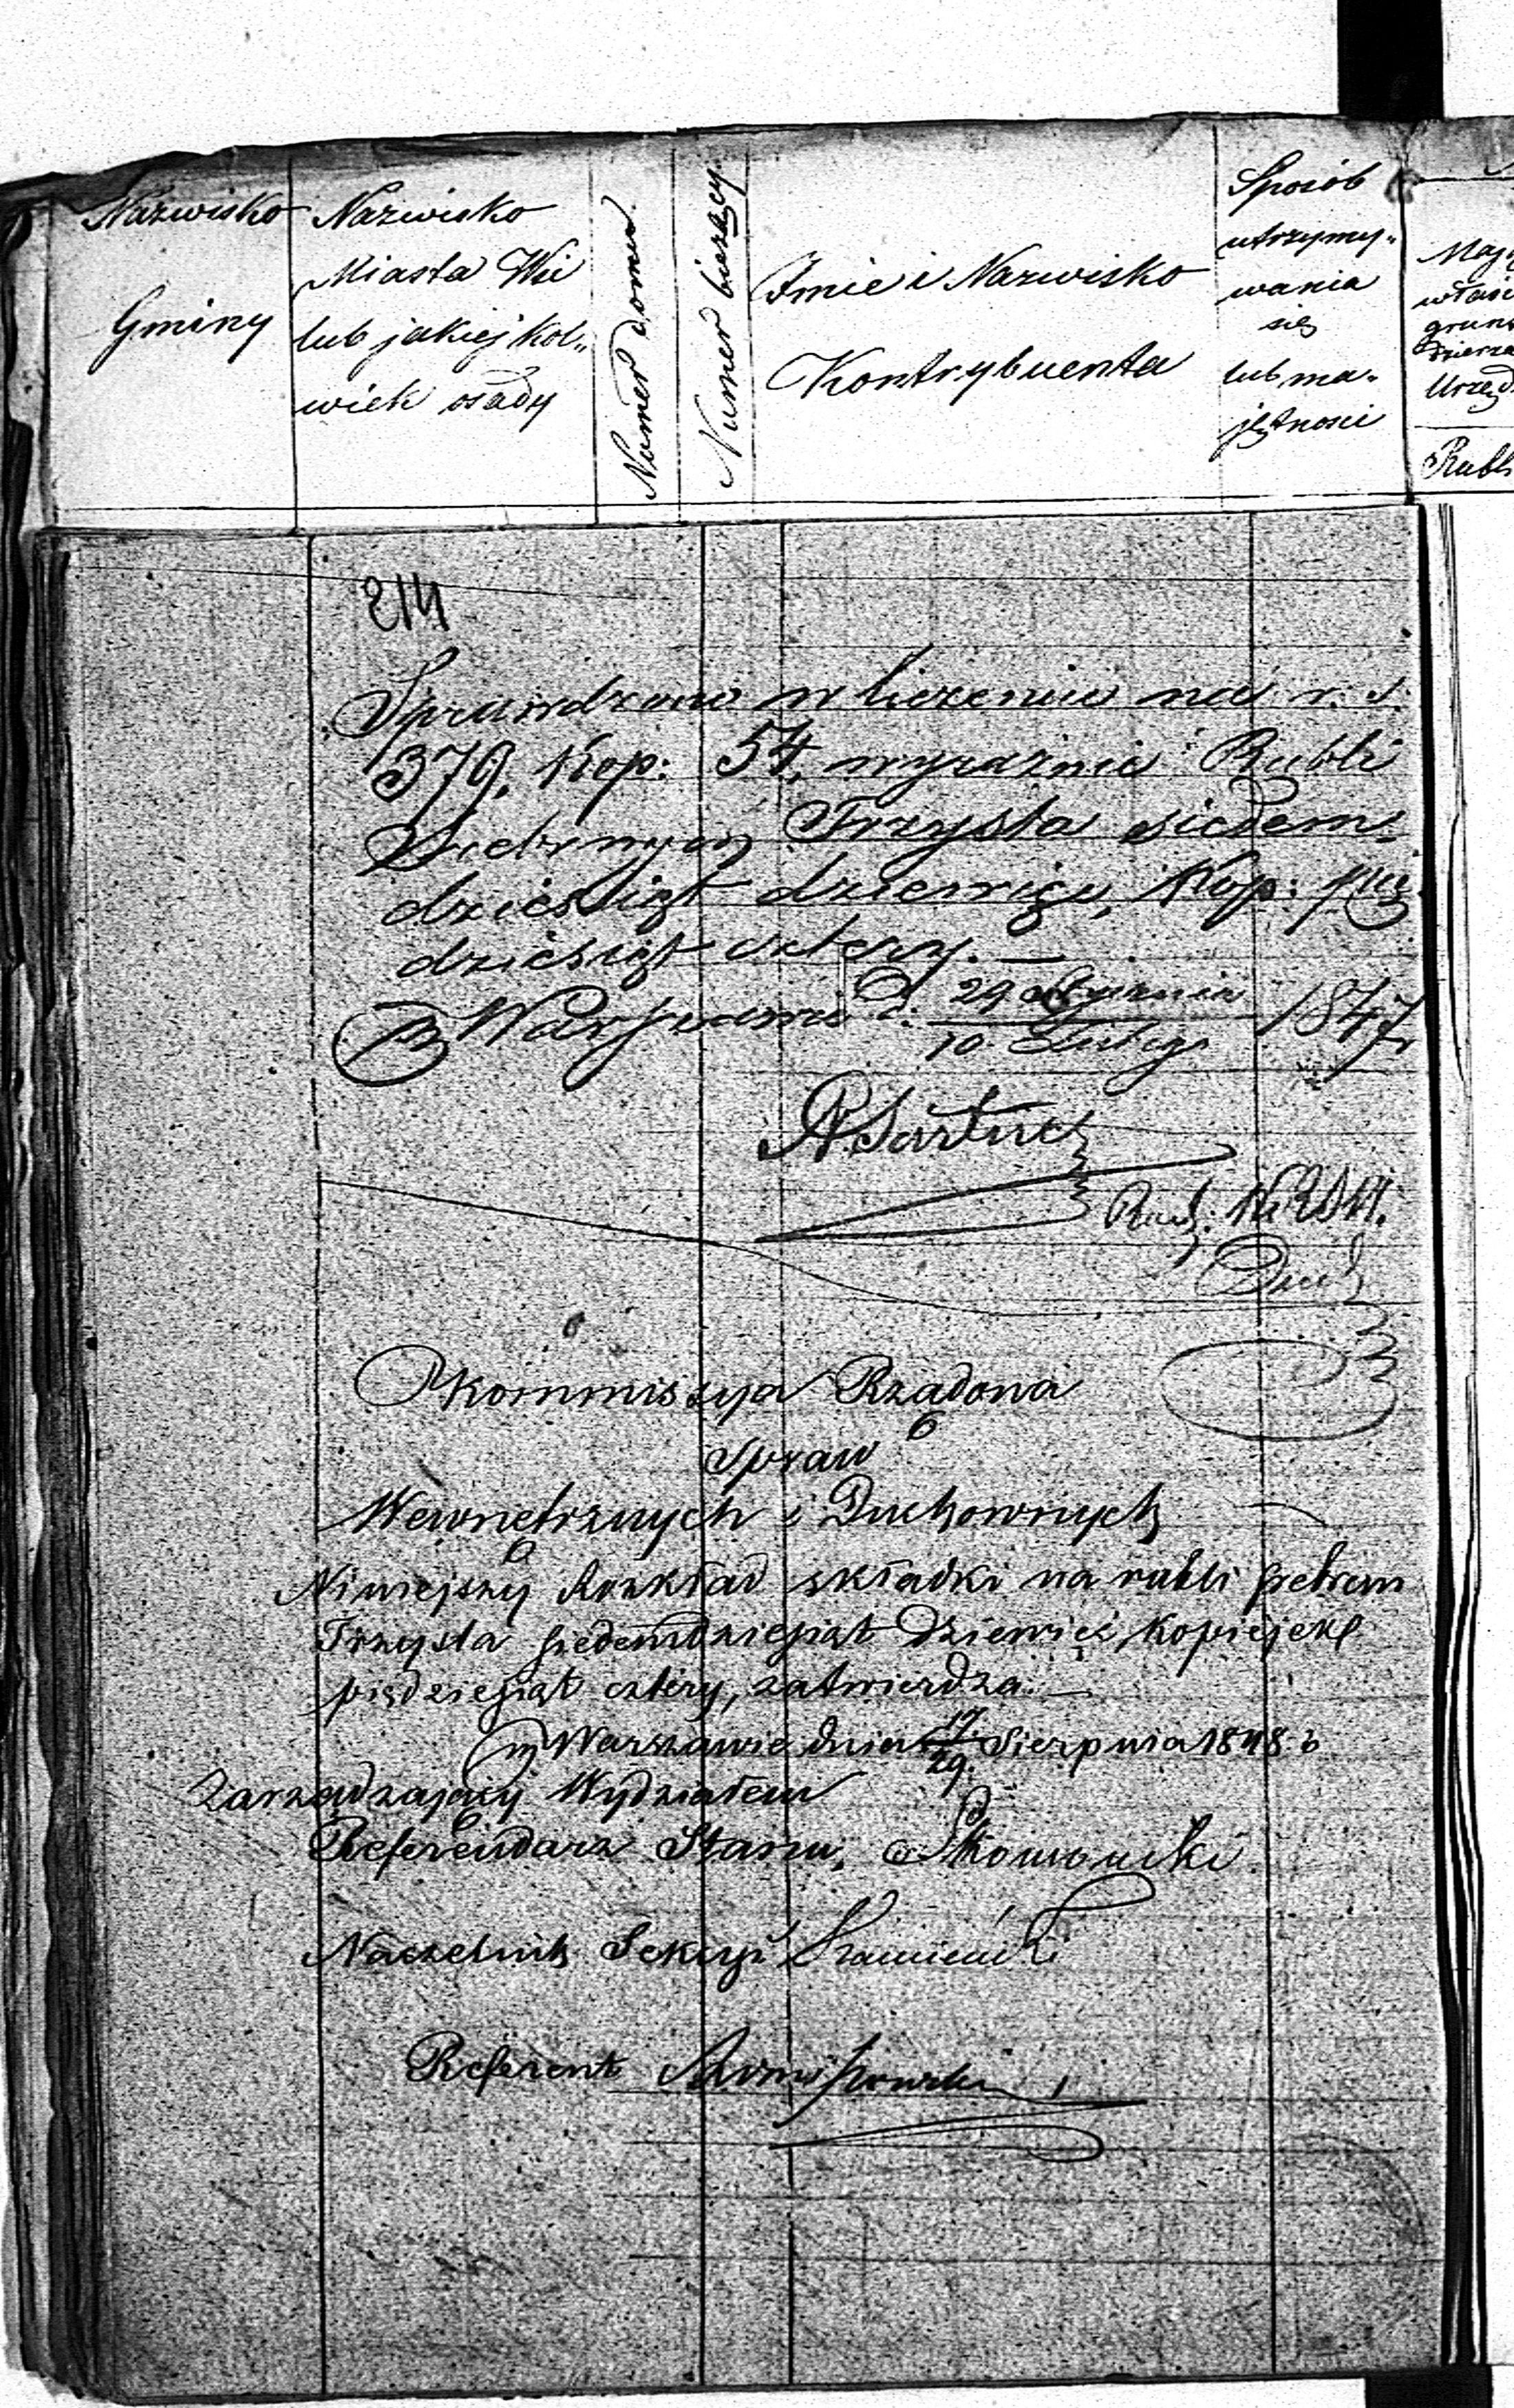 Nazwisko
Gminy
Nazwisko
Miasta Wsi
lub jakiej kol„
wiek osady
Numer domu
Numer bieżący
Imie i Nazwisko
Kontrybuenta
Sposób
utrzymy„
wania
się
lub ma„
jętności
Rubli
214
Sprawdzono w liczeniu na r. s.
379. Kop: 54, wyraźnie Rubli
Srebrnych Trzysta siedem
dziesiąt dziewięć, Kop: pię
dziesiąt cztery. —
w Warszawie d. 29 Stycznia
10 Lutego 1847
Kommissya Rządowa
Spraw
Wewnętrznych i Duchownych
Niniejszy Rozkład składki na rubli srebrem
Trzysta siedemdziesiąt dziewięć, kopiejek
piędziesiąt cztery, zatwierdza. —
w Warszawie dnia 17/29 Sierpnia 1848 r.
Zarządzający Wydziałem
Referendarz Stanu,
Naczelnik Sekcyi
Referent